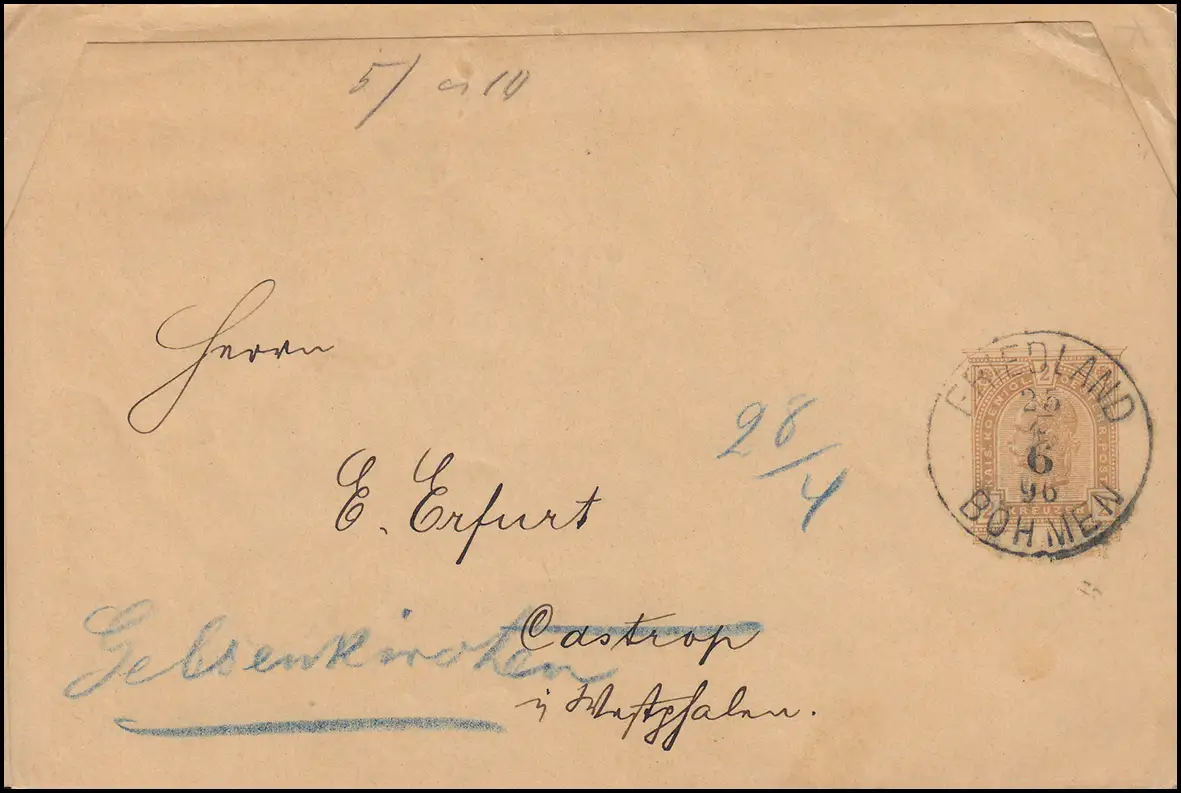 5/
Herrn
E. Erfurt
28/4
Castrop
Gelsenkirchen
i/ Westphalen.
FRIEDLAND
25
4
6
96
BÖHMEN
2
KAIS. KOENIGL. OESTERR. POST
KREUZER